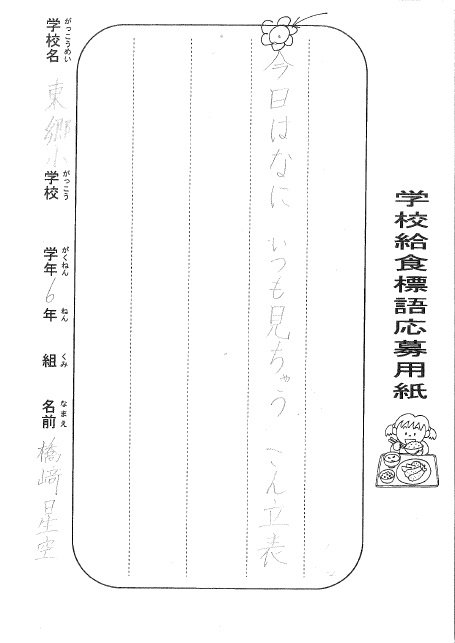 学校給食標語応募用紙
今日はなに いつも見ちゃう こん立表
学校名 東郷小学校
がっこうめい がっこう
学年 6年
がくねん ねん
組
くみ
名前 橋﨑 星空
なまえ